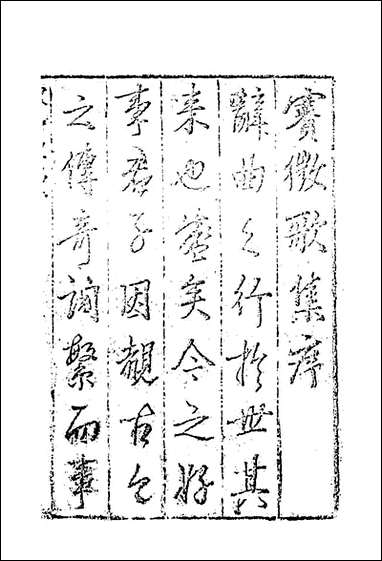 賽徵歌集序
辭曲之行於世其
来也遠矣今之好
事君子因觀古今
之傳奇詞繁而事